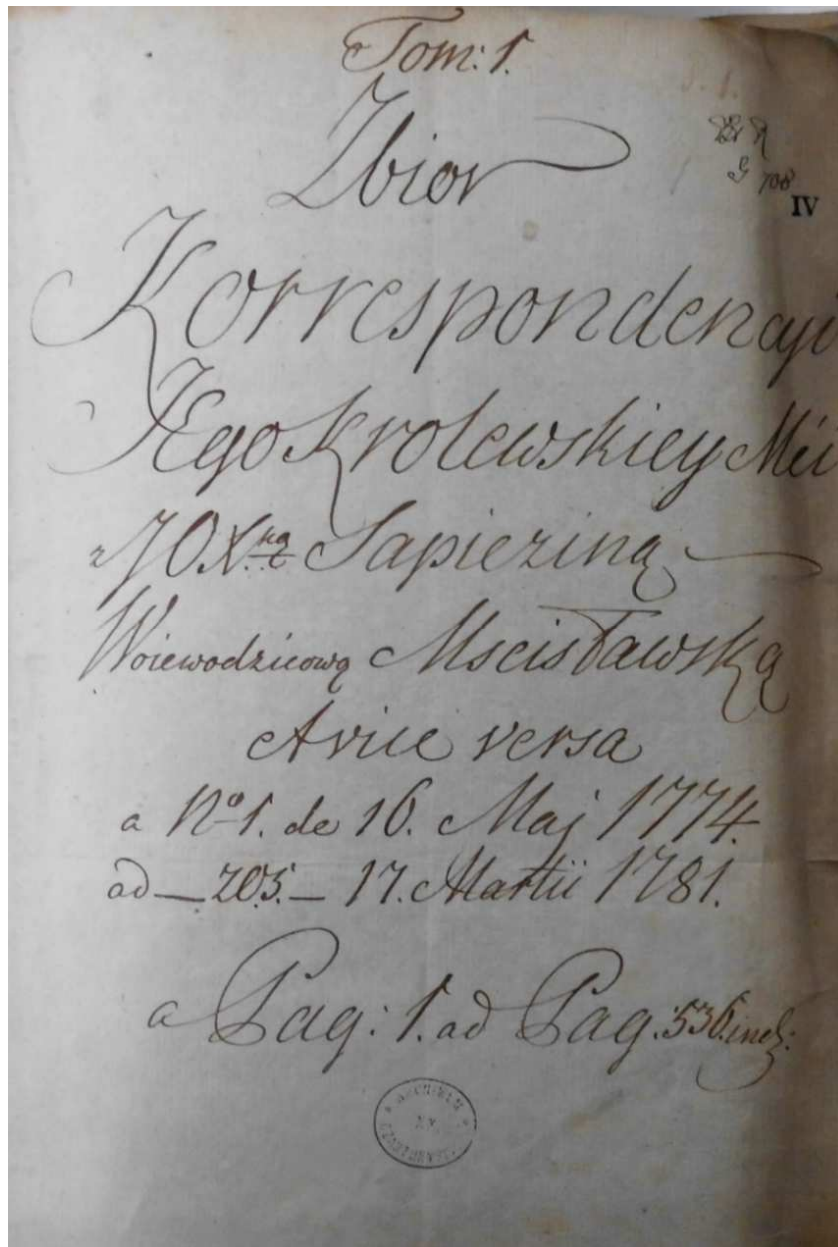 Tom: 1.
Zbior
IV
Korrespondencyi
JEgo Krolewskiey Mci
z JOXną Sapieziną
Woiewodzicową Mscisławską
A vice versa
a No 1. de 16. Maj 1774.
ad — 205. — 17. Martii 1781.
a Pag: 1. ad Pag: 536. incl:
ARCHIWUM
XX.
CZARTORYSKICH